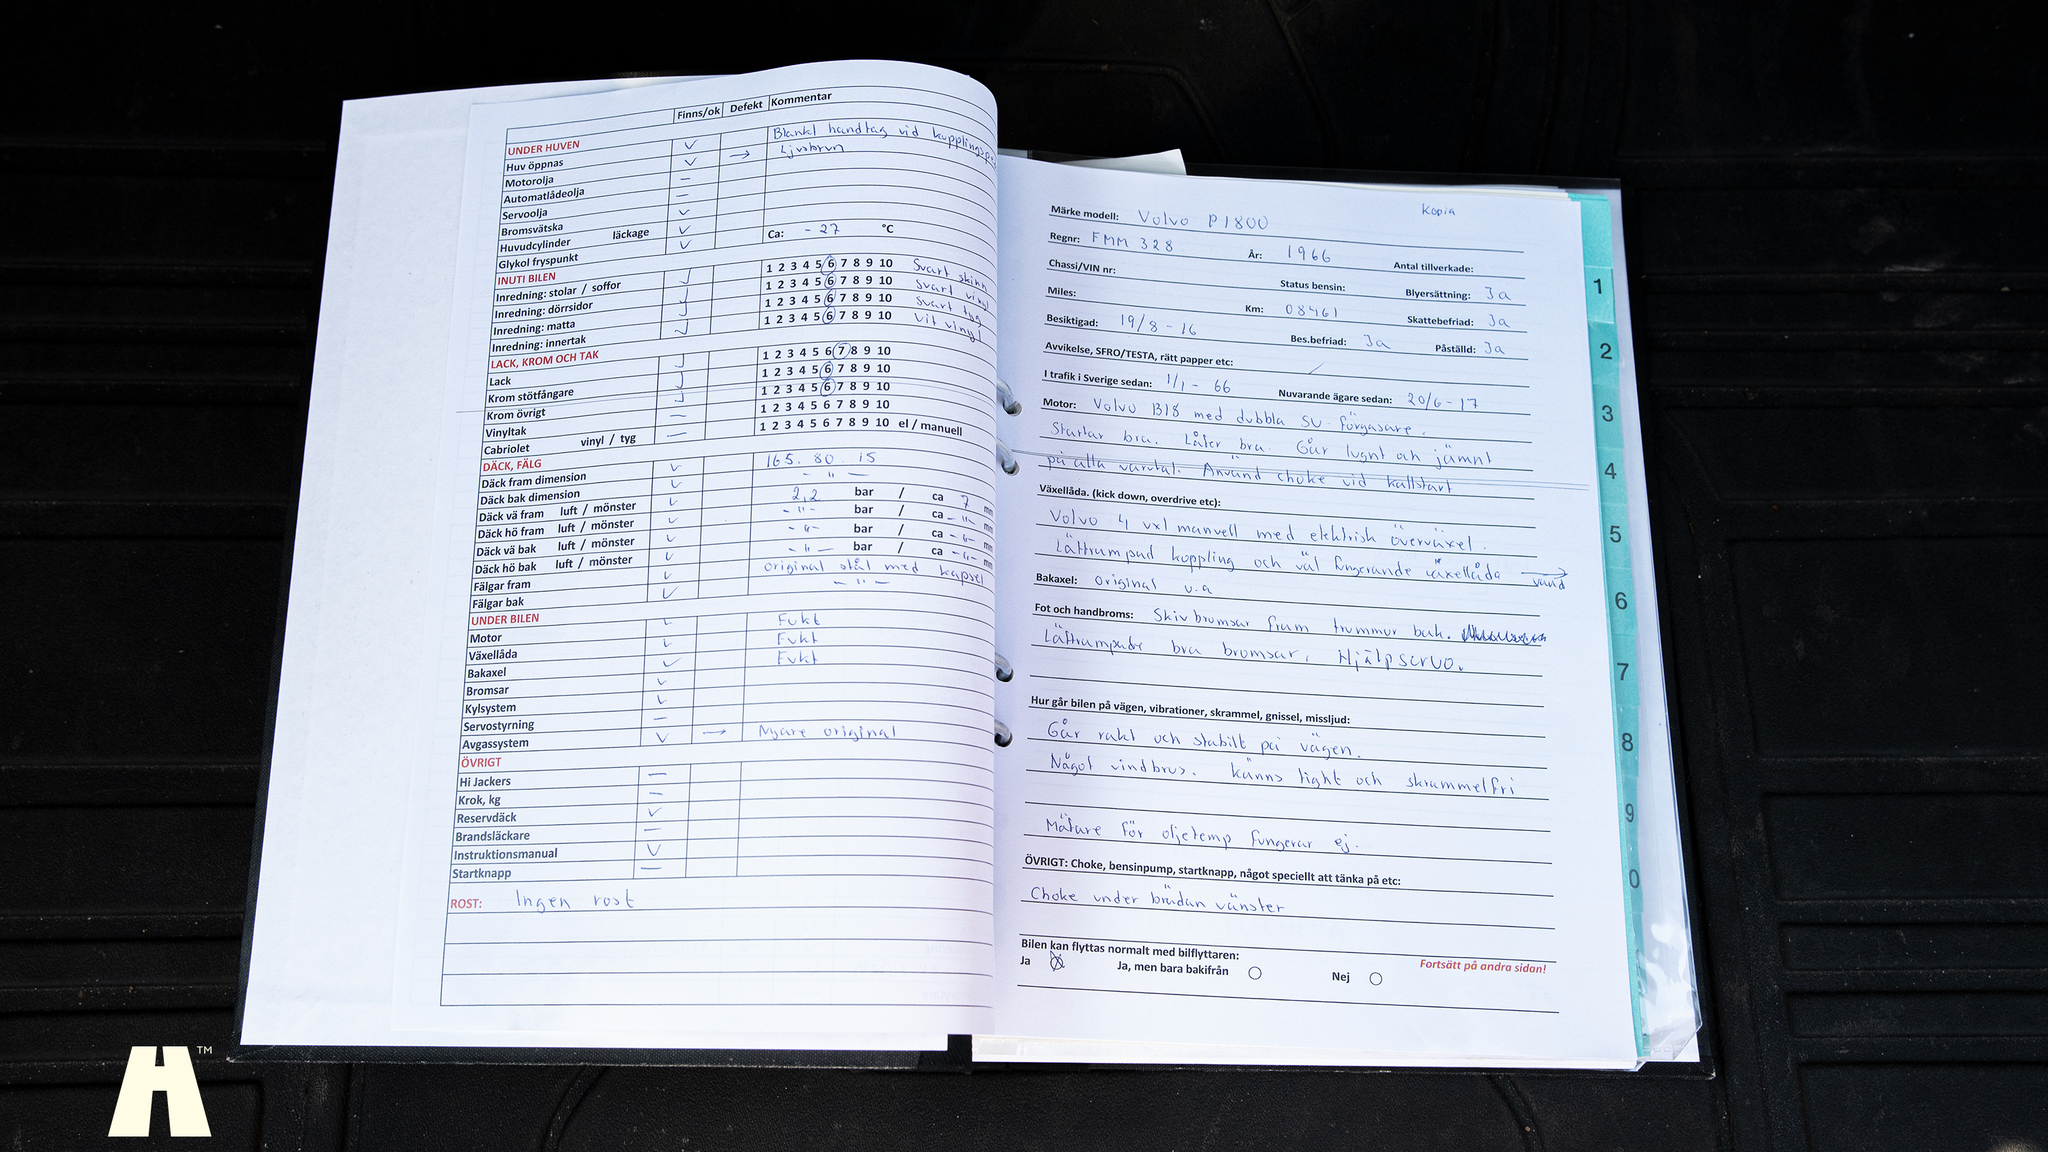 Finns/ok Defekt Kommentar
UNDER HUVEN
Huv öppnas Blankt handtag vid
Motorolja → Ljusbrun
Automatlådeolja –
Servoolja –
Bromsvätska
Huvudcylinder läckage
Glykol fryspunkt Ca: - 27 °C
INUTI BILEN
Inredning: stolar / soffor 1 2 3 4 5 6 7 8 9 10 Svart skinn
Inredning: dörrsidor 1 2 3 4 5 6 7 8 9 10 Svart vinyl
Inredning: matta 1 2 3 4 5 6 7 8 9 10 Svart tyg
Inredning: innertak 1 2 3 4 5 6 7 8 9 10 Vit vinyl
LACK, KROM OCH TAK
Lack 1 2 3 4 5 6 7 8 9 10
Krom stötfångare 1 2 3 4 5 6 7 8 9 10
Krom övrigt 1 2 3 4 5 6 7 8 9 10
Vinyltak – 1 2 3 4 5 6 7 8 9 10
Cabriolet vinyl / tyg – 1 2 3 4 5 6 7 8 9 10 el / manuell
DÄCK, FÄLG
Däck fram dimension 165. 80. 15
Däck bak dimension -"-
Däck vä fram luft / mönster 2,2 bar / ca 7 mm
Däck hö fram luft / mönster -"- bar / ca -"- mm
Däck vä bak luft / mönster -"- bar / ca -"- mm
Däck hö bak luft / mönster -"- bar / ca -"- mm
Fälgar fram original stål med kapsel
Fälgar bak -"-
UNDER BILEN
Motor Fukt
Växellåda Fukt
Bakaxel Fukt
Bromsar
Kylsystem
Servostyrning –
Avgassystem → Nyare original
ÖVRIGT
Hi Jackers –
Krok, kg –
Reservdäck
Brandsläckare –
Instruktionsmanual
Startknapp –
ROST: Ingen rost
Kopia
Märke modell: Volvo P1800
Regnr: FMM 328 År: 1966 Antal tillverkade:
Chassi/VIN nr: Status bensin: Blyersättning: Ja
Miles: Km: 08461 Skattebefriad: Ja
Besiktigad: 19/8 - 16 Bes.befriad: Ja Påställd: Ja
Avvikelse, SFRO/TESTA, rätt papper etc: /
I trafik i Sverige sedan: 1/1 - 66 Nuvarande ägare sedan: 20/6 - 17
Motor: Volvo B18 med dubbla SU-förgasare.
Startar bra. Låter bra. Går lugnt och jämnt
på alla varvtal. Använd choke vid kallstart
Växellåda. (kick down, overdrive etc):
Volvo 4 vxl manuell med elektrisk överväxel.
Lättrampad koppling och väl fungerande växellåda → vänd
Bakaxel: original u.a
Fot och handbroms: Skivbromsar fram trummor bak.
Lättrampade bra bromsar. Hjälpservo.
Hur går bilen på vägen, vibrationer, skrammel, gnissel, missljud:
Går rakt och stabilt på vägen.
Något vindbrus. Känns tight och skrammelfri
Mätare för oljetemp fungerar ej.
ÖVRIGT: Choke, bensinpump, startknapp, något speciellt att tänka på etc:
Choke under brädan vänster
Bilen kan flyttas normalt med bilflyttaren:
Ja Ja, men bara bakifrån Nej
Fortsätt på andra sidan!
1
2
3
4
5
6
7
8
9
0
H™